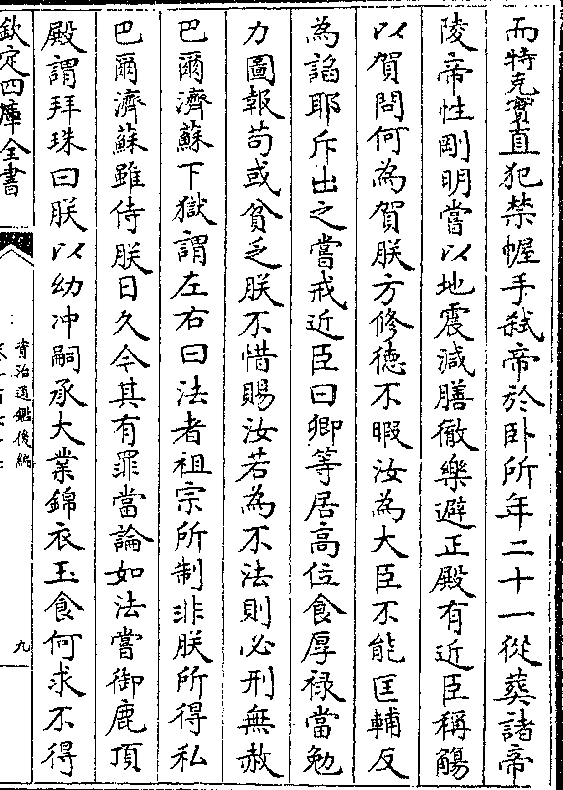 而特克實直犯禁幄手弑帝於卧所年二十一從葬諸帝
陵帝性剛明嘗以地震減膳徹樂避正殿有近臣稱觴
以賀問何為賀朕方修德不暇汝為大臣不能匡輔反
為諂耶斥出之嘗戒近臣曰卿等居高位食厚祿當勉
力圖報苟或貧乏朕不惜賜汝若為不法則必刑無赦
巴爾濟蘇下獄謂左右曰法者祖宗所制非朕所得私
巴爾濟蘇雖侍朕日久今其有罪當論如法嘗御鹿頂
殿謂拜珠曰朕以幼冲嗣承大業錦衣玉食何求不得
欽定四庫全書
資治通鑑後編
九